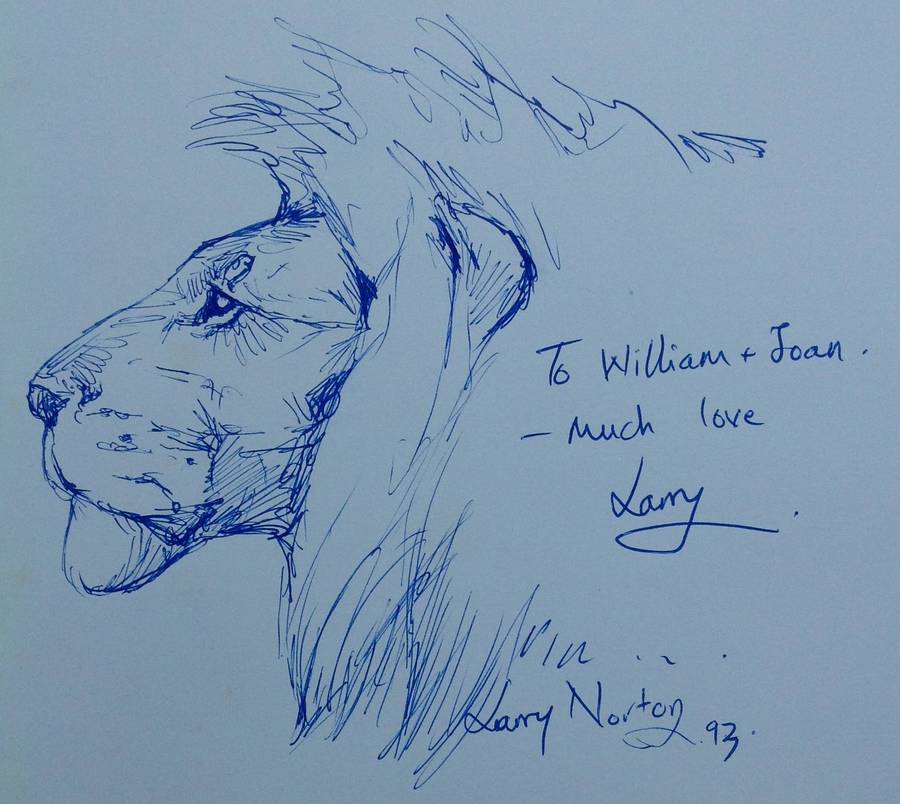 To William + Joan.
- Much love
Larry.
Larry Norton 93.